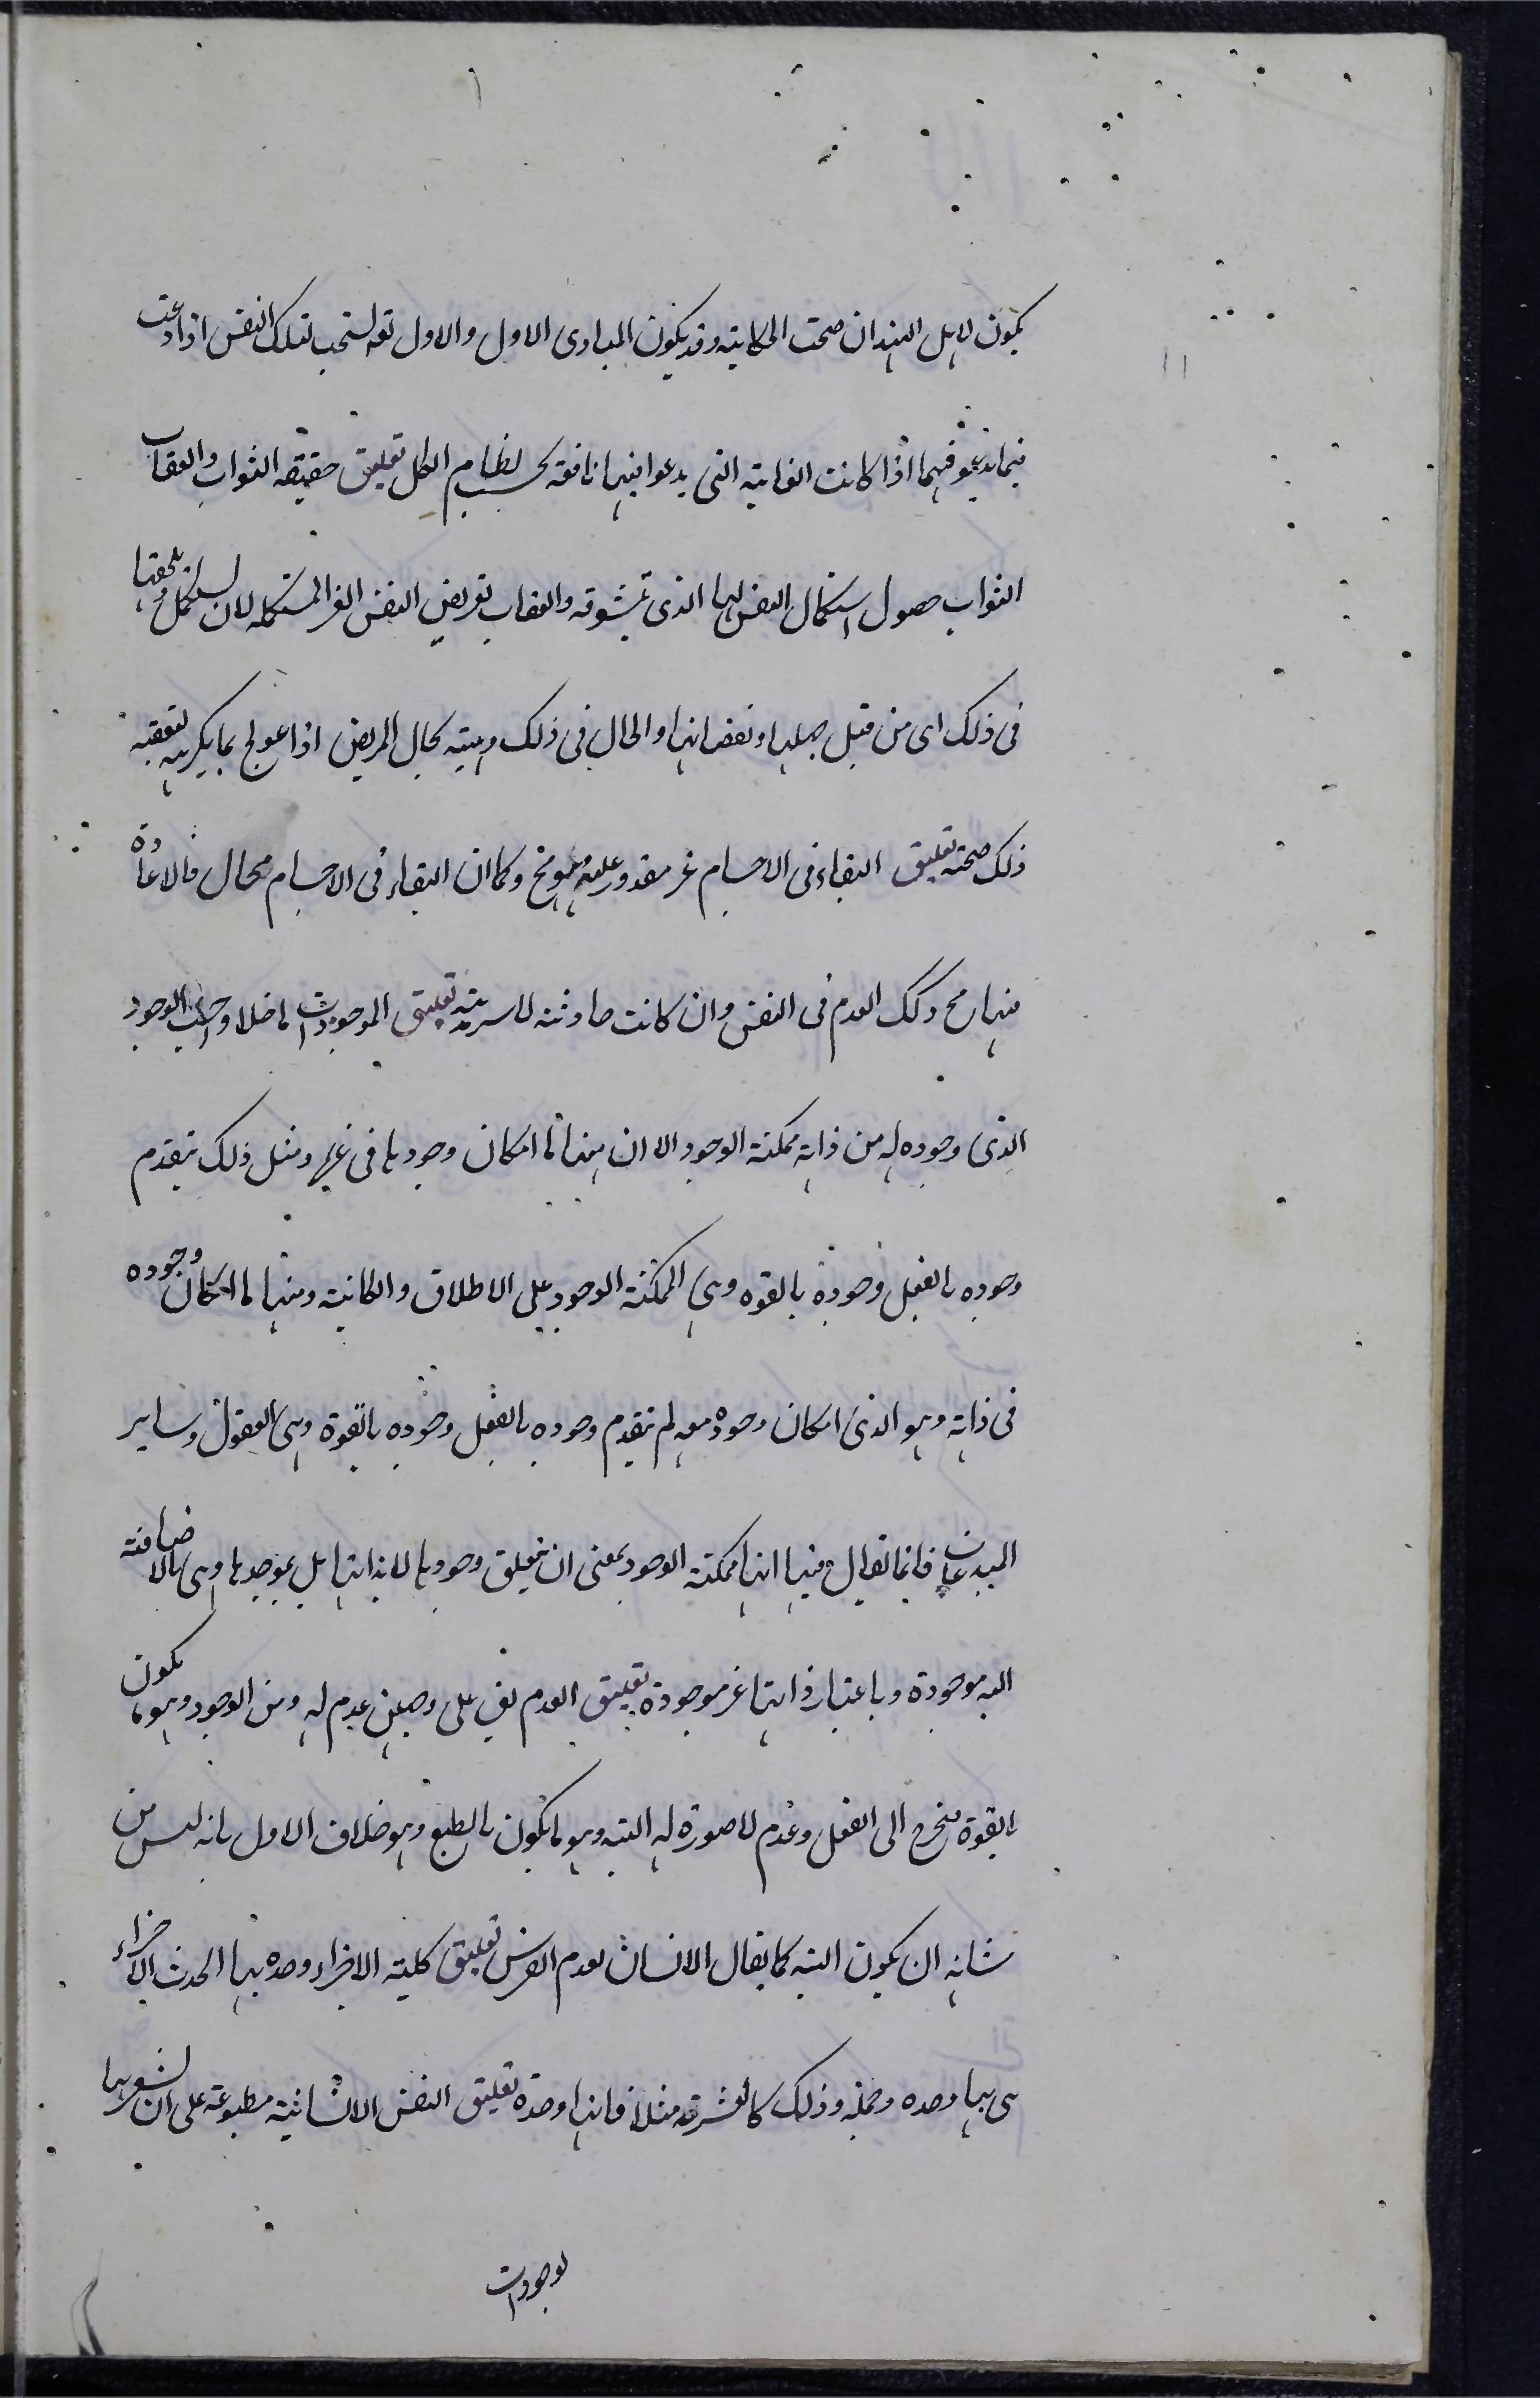 يكون لاهل الهند ان صحت الحكاية وقد يكون المبادى الاول والاول تعه لستجب لتلك النفس اذا دعت
فيما يدعو فيهما اذا كانت الغاية التى يدعوا فيها نافعة بحسب نظام الكل تعليق حقيقة الثواب والعقاب
الثواب حصول استكمال النفس لها الذى تتشوقه والعقاب تعريض النفس الغير المستكمله لان يستكمل يلحقها
فى ذلك اى من قبل جهلها ونقصانها والحال فى ذلك وهيته كحال المريض اذا عولج بما يكرهه لتعقبه
ذلك صحته تعليق البقاء فى الاجسام غير مقدور عليه فهو مح وكما ان البقاء فى الاجسام محال فالاعادة
منها مح وكك العدم فى النفس وان كانت حادثة لا سرمدية تعليق الموجودات ما خلا واجب الوجود
الذى وجوده له من ذاته ممكنة الوجود الا ان منها ما امكان وجودها فى غيره ومثل ذلك يتقدم
وجوده بالفعل وجوده بالقوه وهى الممكنة الوجود على الاطلاق والكائنة ومنها ما امكان وجوده
فى ذاته وهو الذى امكان وجوده معه لم يتقدم وجوده بالفعل وجوده بالقوة وهى العقول وساير
المبدعات فانما يقال فيها انها ممكنة الوجود بمعنى ان يتعلق وجودها لا بذاتها بل بموجدها وهى بالاضافة
اليه موجودة وباعتبار ذاتها غير موجودة تعليق العدم يق على وجهين عدم له ومن الوجود وهو ما يكون
بالقوة فيخرج الى الفعل وعدم لا صورة له البته وهو ما يكون بالطبع وهو خلاف الاول بانه ليس من
شانه ان يكون البته كما يقال الانسان بعدم الفرس تعليق كلية الاجزاء وحده بها الحدث الاجزاء
هى بها وحده وجملة وذلك كالعشرة مثلا فانها وحدة تعليق النفس الانسانية مطبوعة على ان تشعر بها
لوجودات